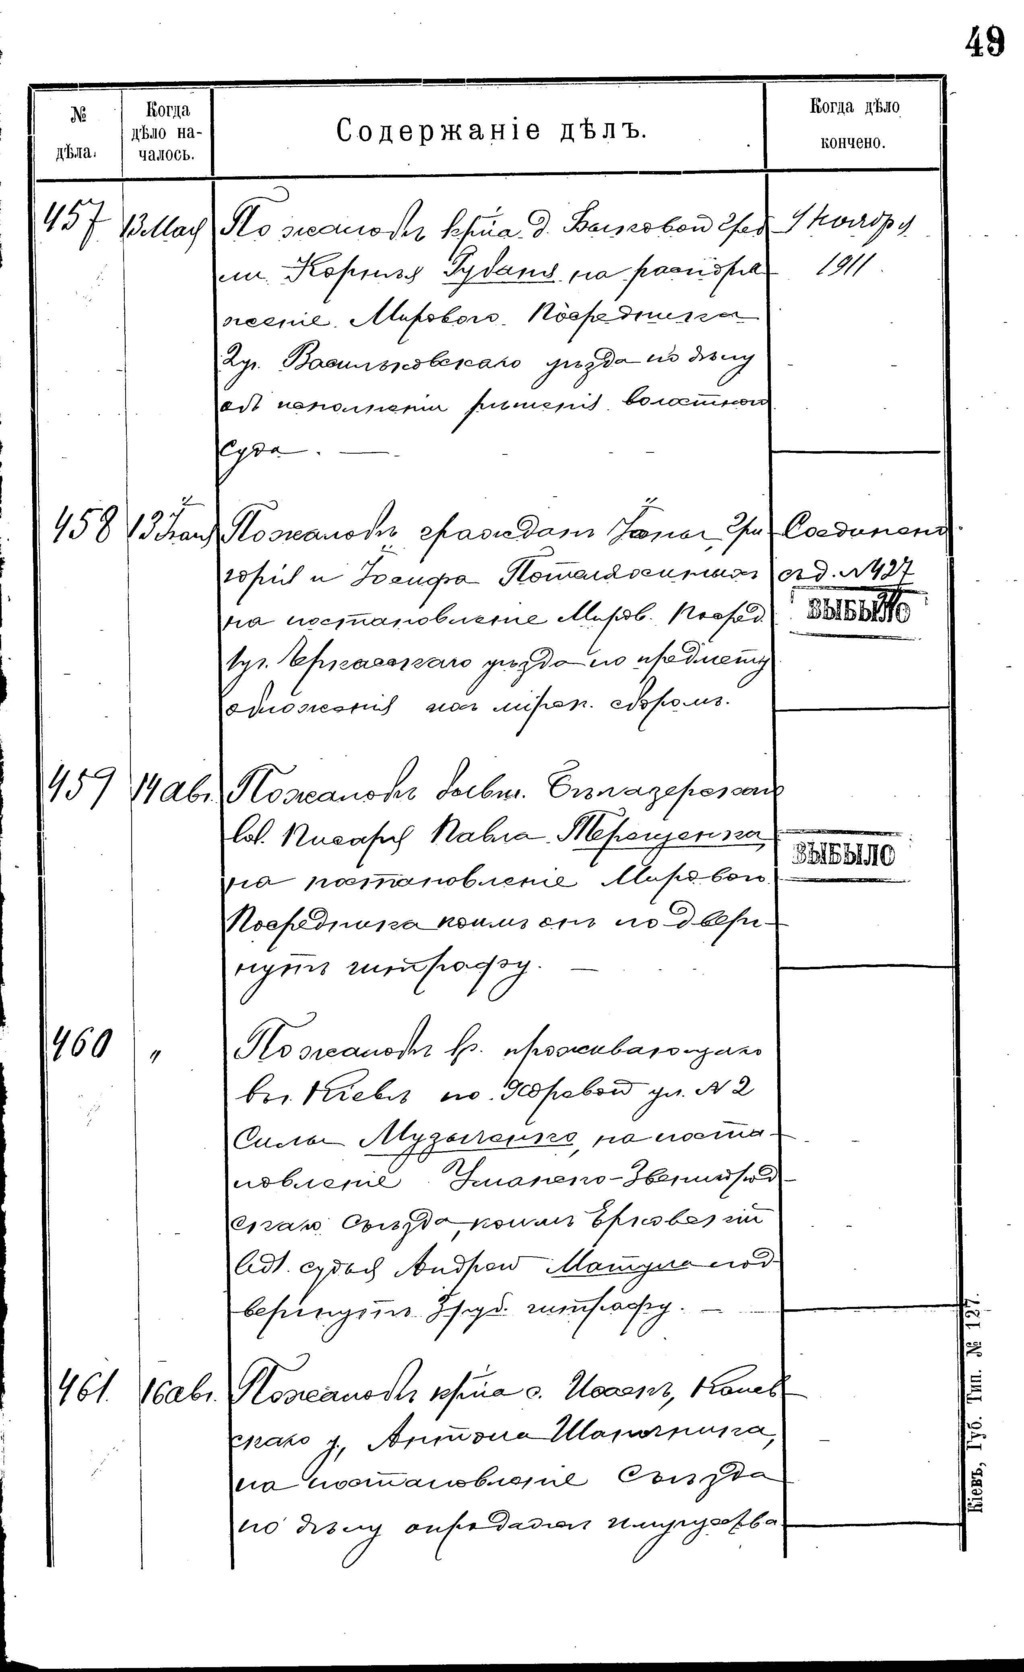 49
№ дѣла.
Когда дѣло началось.
Содержаніе дѣлъ.
Когда дѣло кончено.
457 13 Мая По жалобѣ кр-на д. Быковой Греб
ли Корнія Губаня на распоря
женіе Мироваго Посредника
2 уч. Васильковскаго уѣзда по дѣлу
объ исполненіи рѣшенія волостного
Суда. —
1 ноября
1911
458 13 По жалобѣ граждан Гри
горія и Іосифа
на постановленіе Миров. Посред.
1 уч. Черкасскаго уѣзда по предмету
обложенія ихъ мірск. сборомъ.
Соединено
съ д. № 427
ВЫБЫЛО
459 14 авг. По жалобѣ бывш. Бѣлазерскаго
вол. Писаря Павла Терещенка,
на постановленіе Мирового
Посредника коимъ онъ подвер-
нутъ штрафу. —
ВЫБЫЛО
460 " По жалобѣ кр. проживающаго
въ г. Кіевѣ по ул. № 2
Силы Музыченко, на поста-
новленіе Уманско-Звенигород-
скаго Съѣзда, коимъ
вол. судья Андрей Мацула под-
вергнутъ 3 руб. штрафу. —
461. 16 авг. По жалобѣ кр-на с. Исаекъ, Канев-
скаго у., Антона Шапочника,
на постановленіе Съѣзда
по дѣлу о продажѣ имущества
Кіевъ, Губ. Тип. № 127.